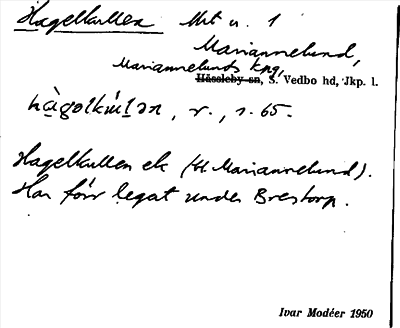 Hagelkullen Mt u. 1
Mariannelund,
Mariannelunds kpg,
Hässleby sn, S. Vedbo hd, Jkp. l.
hàgəlkul̠ən, r., s. 65.
Hagelkullen ek (til Mariannelund).
Har förr legat under Brestorp.
Ivar Modéer 1950